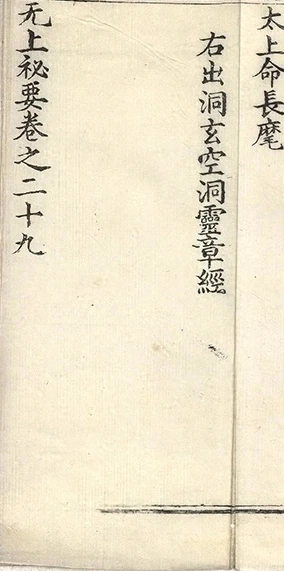 太上命長麾
右出洞玄空洞靈章經
无上祕要卷之二十九